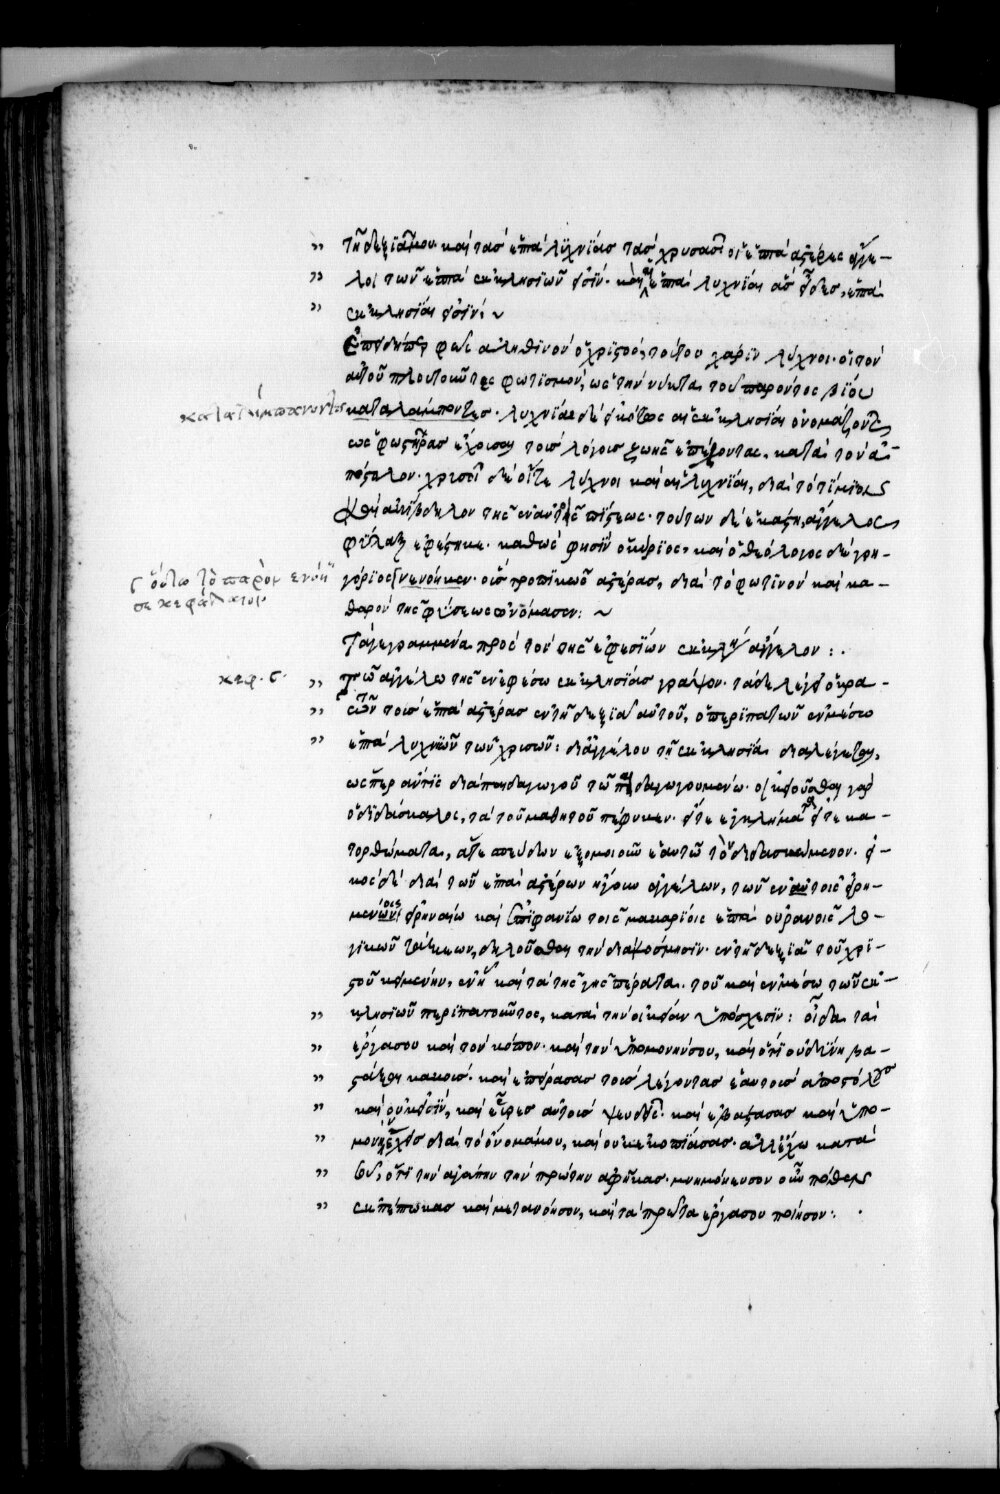 τῆ δεξιᾶ μου· καὶ τὰσ ἑπτὰ λυχνίασ τὰσ χρυσᾶσ· οἱ ἑπτὰ ἀστέρες ἄγγε-
λοι τῶν ἑπτὰ ἐκκλησιῶν εἰσίν· καὶ αἱ ἑπτὰ λυχνίαι ἃσ εἶδεσ, ἑπτὰ
ἐκκλησίαι εἰσίν:
Ἐπειδήπερ φῶς ἀληθινὸν ὁ χριστός, τούτου χάριν λύχνοι· οἱ τὸν
αὐτοῦ πλουτοῦντες φωτισμόν, ὡς τὴν νύκτα τοῦ παρόντος βίου
καταλάμποντες· λυχνίαι δὲ εἰκότως αἱ ἐκκλησίαι ὀνομάζονται
ὡς φωστῆρασ ἔχουσαι τοὺσ λόγον ζωῆς ἐπέχοντας, κατὰ τὸν ἀ-
πόστολον· χρυσοῖ δὲ οἵ τε λύχνοι καὶ αἱ λυχνίαι, διὰ τὸ τίμιον
καὶ ἀκίβδηλον τῆς ἐν αὐτοῖς πίστεως· τούτων δὲ ἑκάστη, ἄγγελος
φύλαξ ἐφέστηκε· καθώς φησιν ὁ κύριος, καὶ ὁ θεόλογος δὲ γρη-
γόριος νενόηκεν· οὓς τροπικῶς ἀστέρασ, διὰ τὸ φωτινὸν καὶ κα-
θαρὸν τῆς φύσεως ὠνόμασεν:
Τὰ γεγραμμένα πρὸς τὸν τῆς ἐφεσίων ἐκκλη ἄγγελον:
κεφ. ς
Τῶ ἀγγέλω τῆς ἐν ἐφέσω ἐκκλησίασ γράψον· τάδε λέγει ὁ κρα-
τῶν τοὺσ ἑπτὰ ἀστέρασ ἐν τῆ δεξιᾶ αὐτοῦ, ὁ περιπατῶν ἐν μέσω
ἑπτὰ λυχνιῶν τῶν χρυσῶν: δι' ἀγγέλου τῆ ἐκκλησία διαλέγεται,
ὥσπερ αὐτίς διὰ παιδαγωγοῦ τῶ παιδαγωγουμένω· οἰκειοῦσθαι γὰρ
ὁ διδάσκαλος, τὰ τοῦ μαθητοῦ πέφυκεν· εἴτε ἐγκλήματα εἴτε κα-
τορθώματα, ἅτε σπεύδων ἐξομοιοῦν ἑαυτῶ τὸν διδασκόμενον· εἰ-
κὸς δὲ διὰ τῶν ἑπτὰ ἀστέρων ἤγουν ἀγγέλων, τῶν ἐν αὐτοῖς εἰρη-
μένων εἰρηναίω καὶ ἐπιφανίω τοῖς μακαρίοις ἑπτὰ οὐρανοῖς λο-
γικῶν ταγμάτων, δηλοῦσθαι τὴν διακόσμησιν· ἐν τῆ δεξιᾶ τοῦ χρι-
στοῦ κειμένην, ἐν ᾗ καὶ τὰ τῆς γῆς πέρατα. τοῦ καὶ ἐν μέσω τῶν ἐκ-
κλησιῶν περιπατοῦντος, κατὰ τὴν οἰκείαν ὑπόσχεσιν: οἶδα τὰ
ἔργα σου καὶ τὸν κόπον· καὶ τὴν ὑπομονήν σου, καὶ ὅτι οὐ δύνη βα-
στάξαι κακούσ· καὶ ἐπείρασασ τοὺσ λέγοντασ ἑαυτοὺσ ἀποστόλουσ
καὶ οὐκ εἰσίν, καὶ εὗρεσ αὐτοὺσ ψευδεῖς· καὶ ἐβάστασασ καὶ ὑπο-
μονὴν ἔχεισ διὰ τὸ ὄνομά μου, καὶ οὐκ ἐκοπίασασ· ἀλλ' ἔχω κατὰ
σοῦ, ὅτι τὴν ἀγάπην τὴν πρώτην ἀφῆκασ· μνημόνευσον οὖν πόθεν
ἐκπέπτωκασ καὶ μετανόησον, καὶ τὰ πρῶτα ἔργα σου ποίησον: